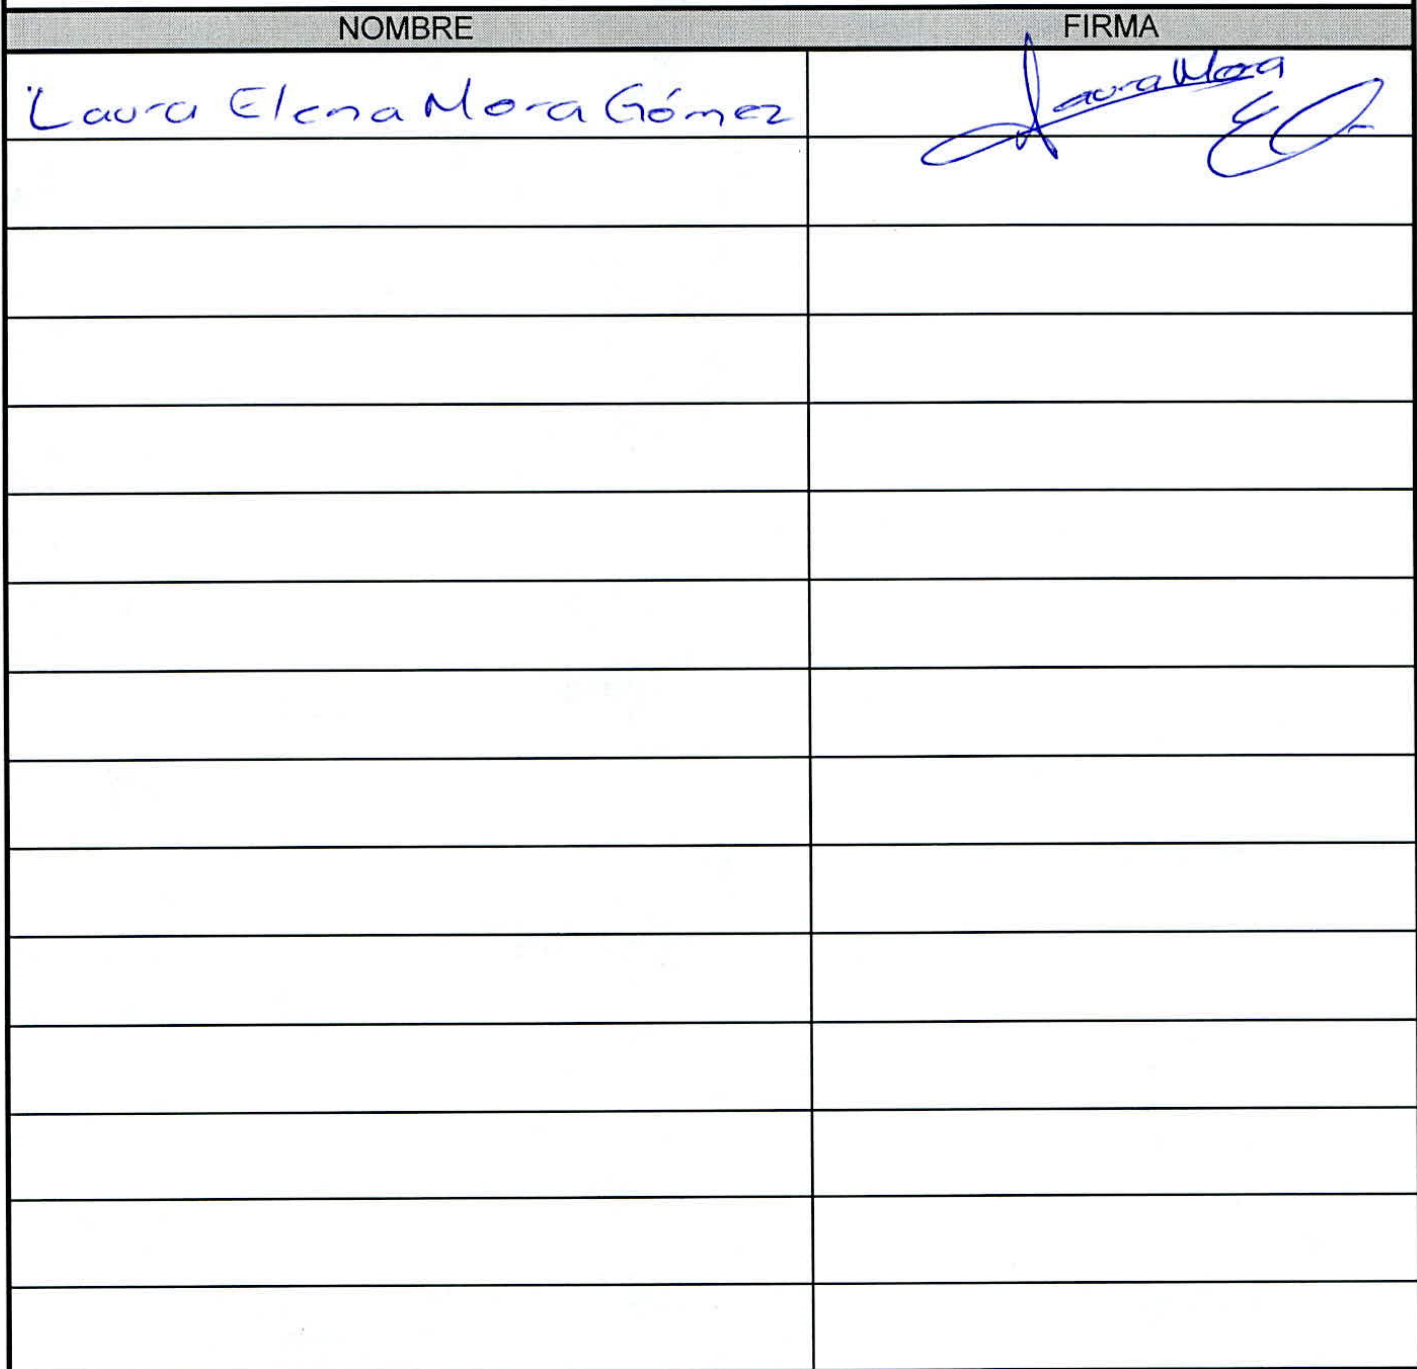 NOMBRE FIRMA
Laura Elena Mora Gómez Laura Mora